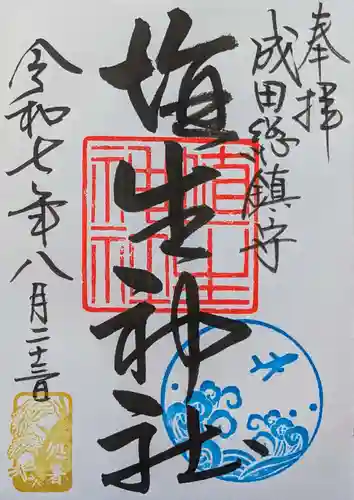 奉拝
成田総鎮守
埴生神社
令和七年八月二十三日
埴生神社
処暑